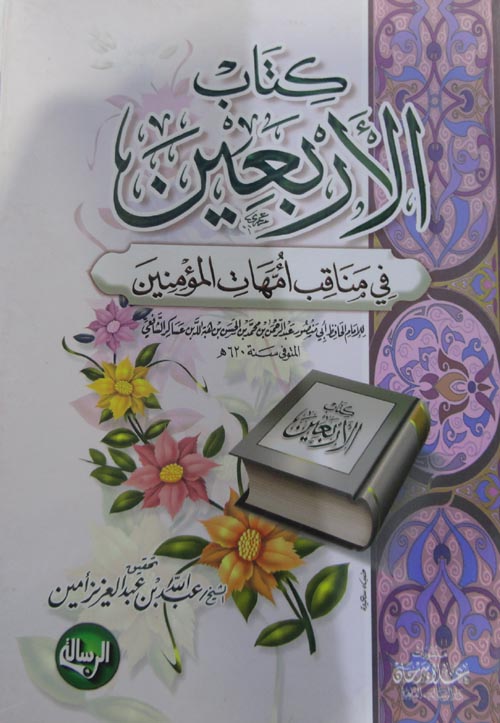 كِتَابُ
الأَرْبَعِينَ
فِي مَنَاقِبِ أُمَّهَاتِ المُؤْمِنِينَ
للإمام الحافظ أبي منصور عبد الرحمن بن محمد بن الحسن بن هبة الله بن عساكر الشافعي
المتوفى سنة ٦٢٠هـ
كتاب
الأربعين
تحقيق
الشيخ/ عبد الله بن عبد العزيز أمين
الرسالة